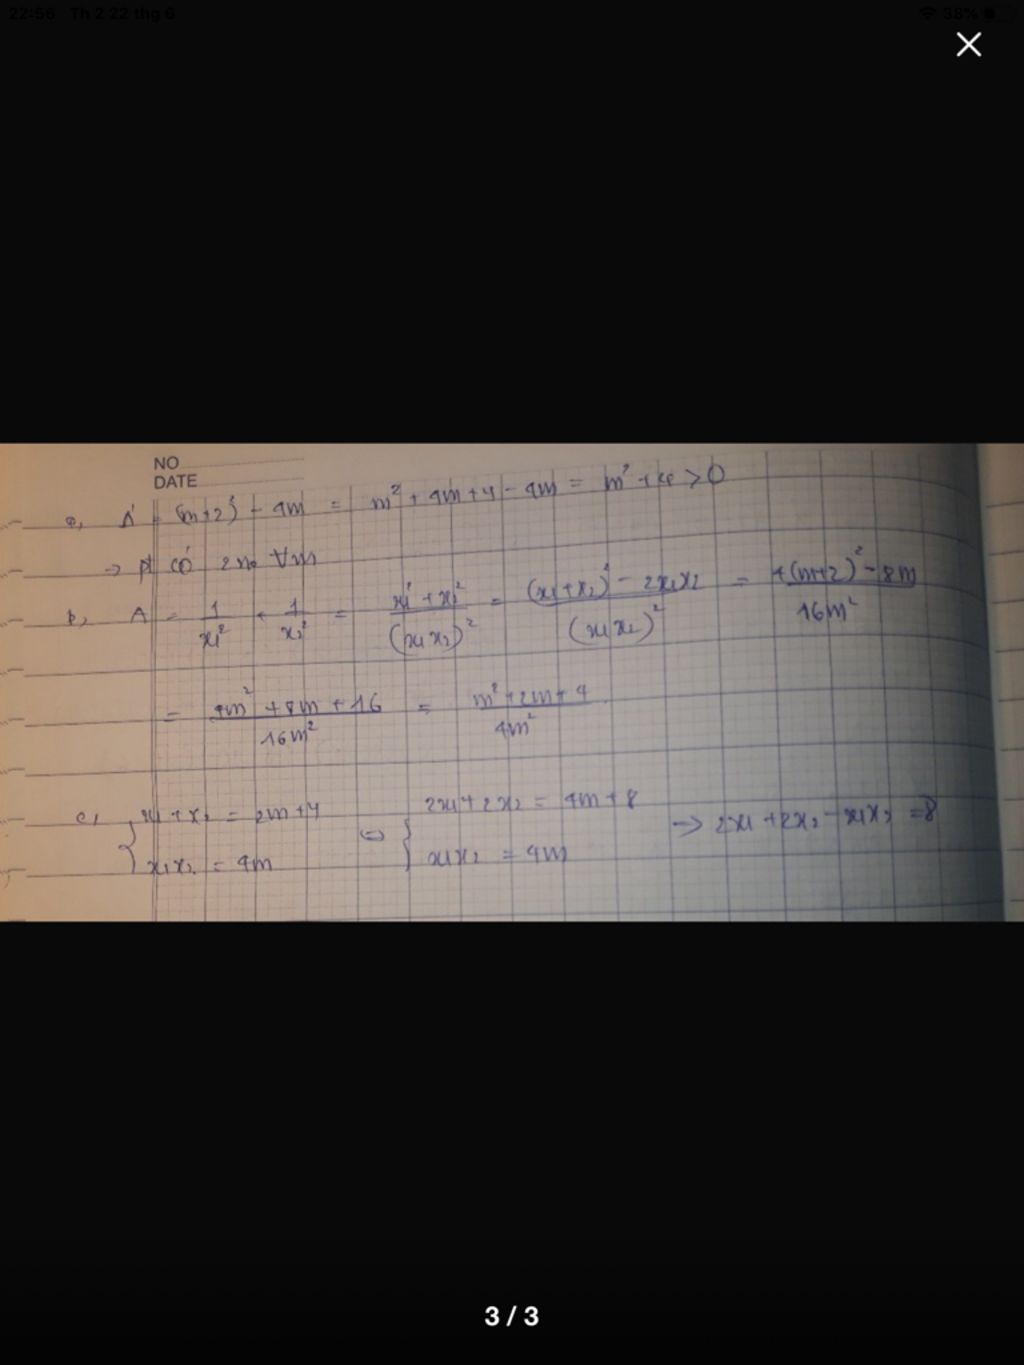 22:56 Th 2 22 thg 6
38%
NO
DATE
a, Δ' = (m+2)² - 4m = m² + 4m + 4 - 4m = m² + 4 > 0
→ pt có 2 no ∀m
b, A = 1/x₁² + 1/x₂² = (x₁² + x₂²)/(x₁x₂)² = ((x₁+x₂)² - 2x₁x₂)/(x₁x₂)² = (4(m+2)² - 8m)/16m²
= (4m² + 8m + 16)/16m² = (m² + 2m + 4)/4m²
c, { x₁ + x₂ = 2m + 4 ⇔ { 2x₁ + 2x₂ = 4m + 8 → 2x₁ + 2x₂ - x₁x₂ = 8
x₁x₂ = 4m x₁x₂ = 4m
3 / 3